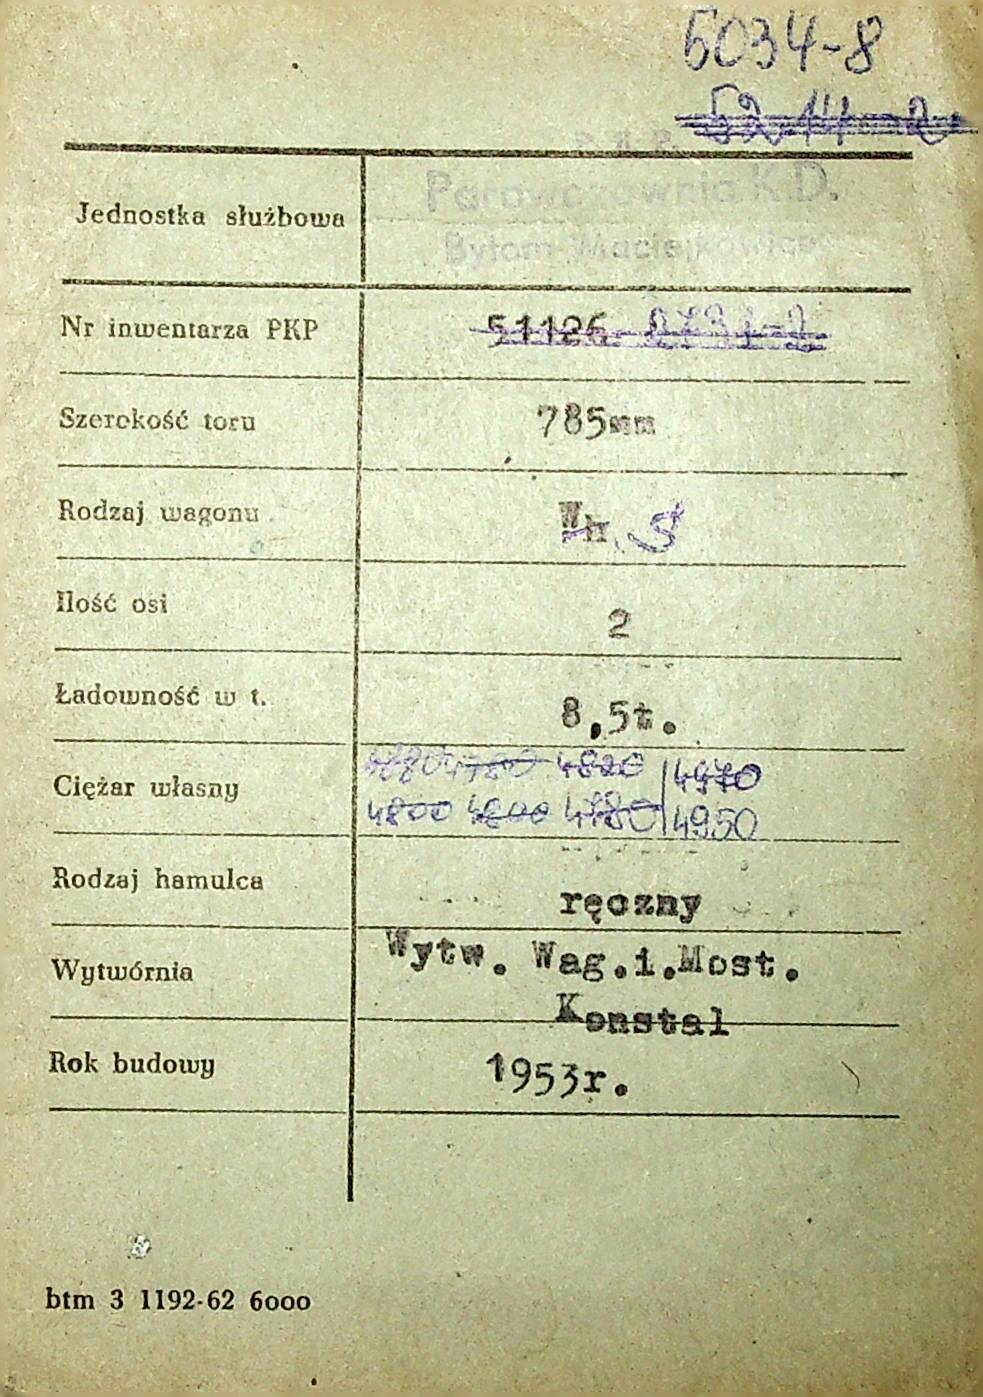 5034-8
P.K.P.
Parowozownia K.D.
Jednostka służbowa
Bytom-Maciejkowice
Nr inwentarza PKP 51126
Szerokość toru 785mm
Rodzaj wagonu Wh S
Ilość osi 2
Ładowność w t. 8,5t.
4780 4820 4970
Ciężar własny
4800 4800 4780 4950
Rodzaj hamulca ręczny
Wytw. Wag.i.Most.
Wytwórnia
Konstal
Rok budowy 1953r.
btm 3 1192-62 6000